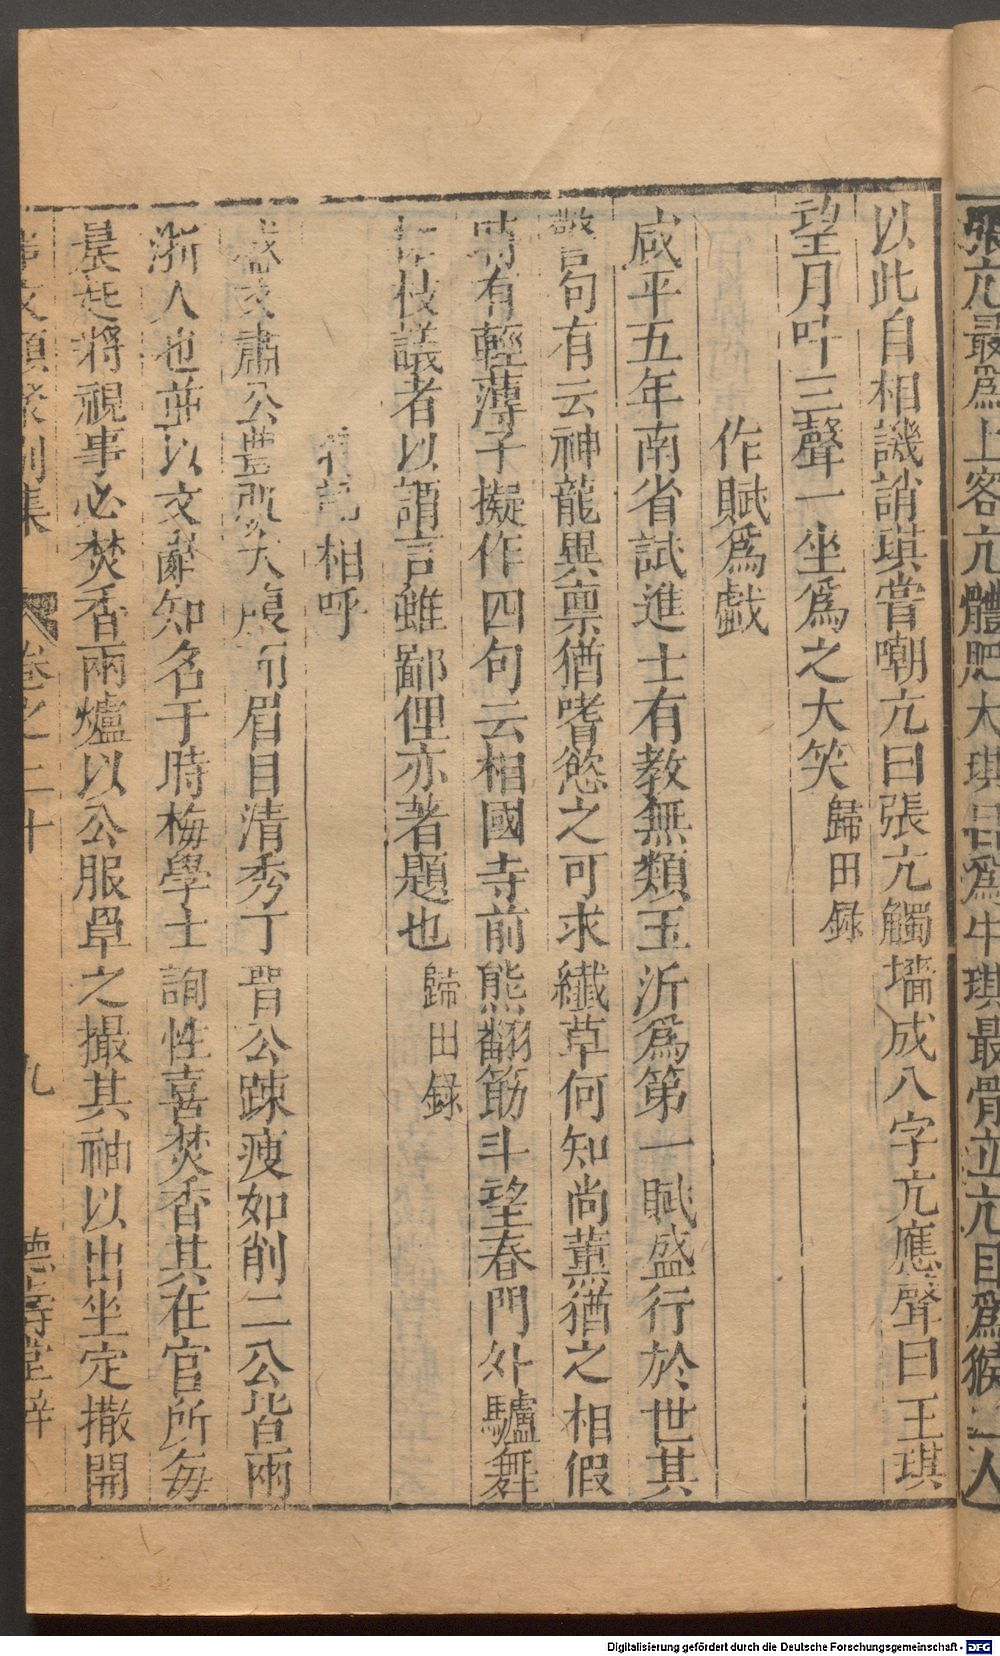 張亢最爲上客亢體肥大琪目爲牛琪最骨立亢目爲猴二人
以此自相譏誚琪嘗嘲亢曰張亢觸墻成八字亢應聲曰王琪
望月叫三聲一坐爲之大笑歸田録
作賦爲戲
咸平五年南省試進士有教無類王沂爲第一賦盛行於世其
警句有云神龍異禀猶嗜慾之可求纎草何知尚薰猶之相假
時有輕薄子擬作四句云相國寺前熊翻筋斗望春門外驢舞
柘枝議者以謂言雖鄙俚亦著題也歸田録
相呼
盛文肅公豊肌大腹而眉目清秀丁晋公踈瘦如削二公皆兩
浙人也並以文辭知名于時梅學士詢性喜焚香其在官所每
晨起將視事必焚香兩爐以公服罩之撮其袖以出坐定撒開
事文類聚別集 卷之二十 九 德壽堂梓
Digitalisierung gefördert durch die Deutsche Forschungsgemeinschaft - DFG